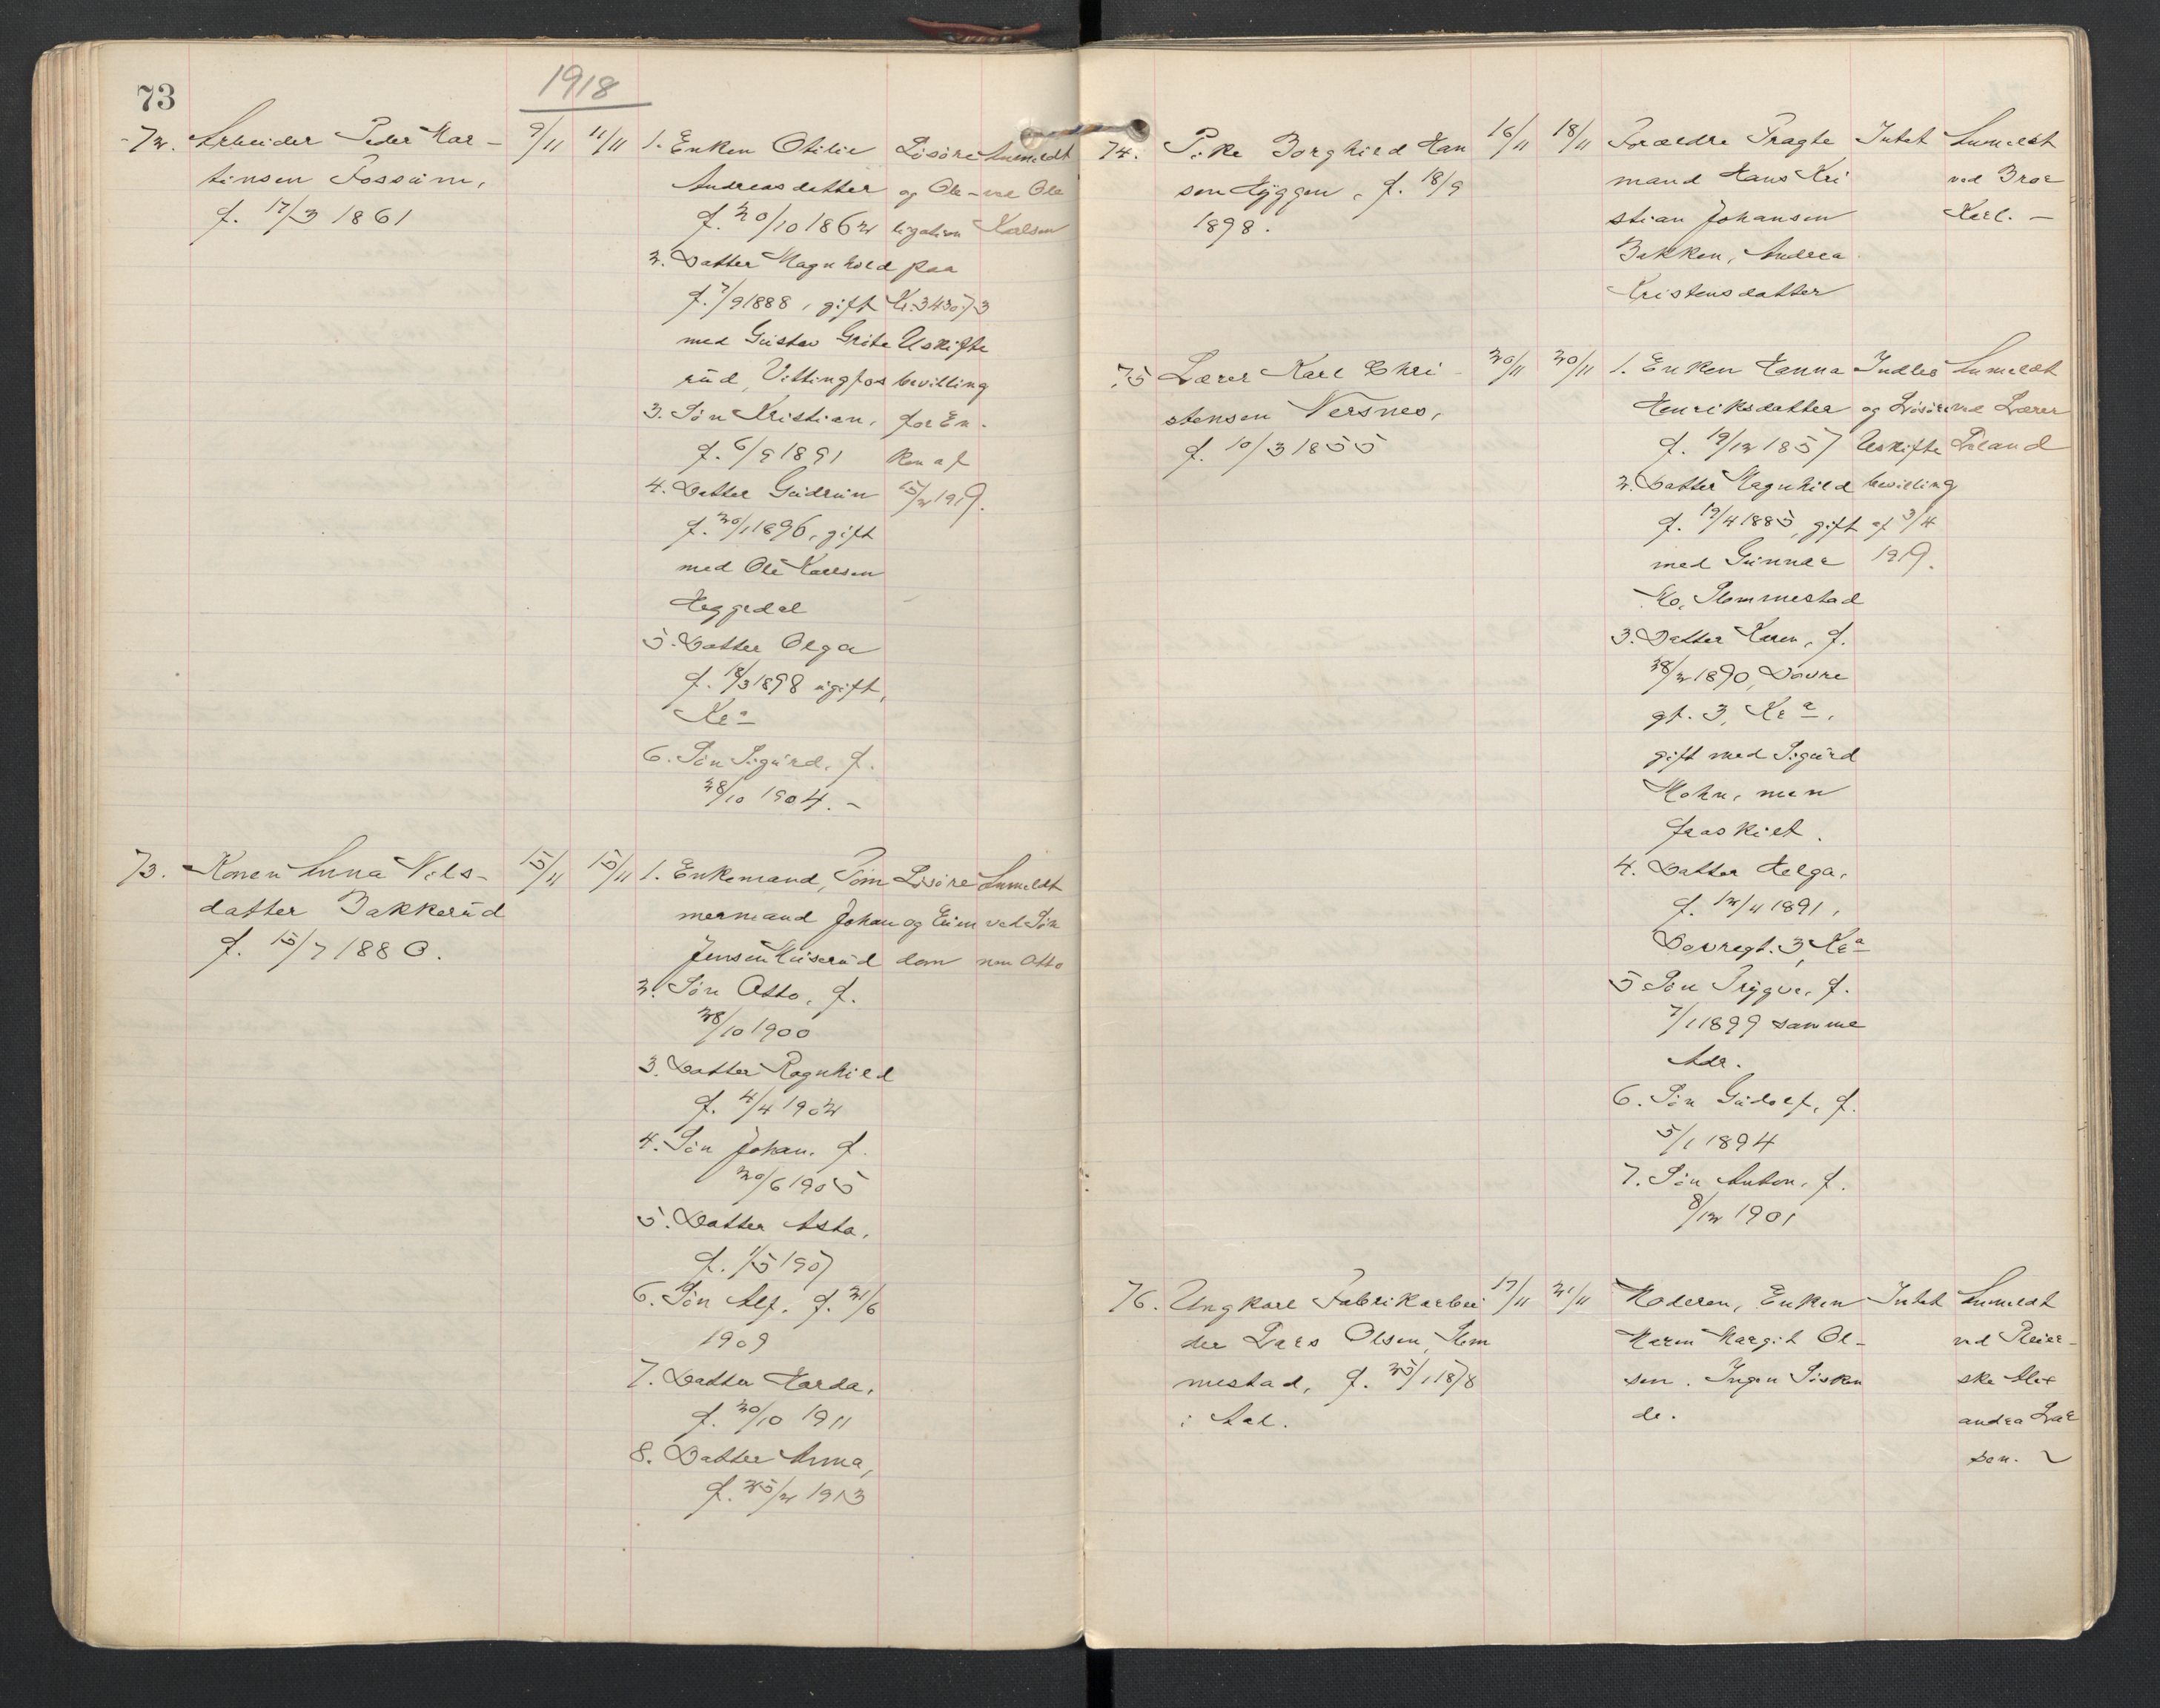 73
1918
72. Arbeider Peder Mar-
tinsen Fossum,
f. 17/3 1861
9/11 11/11
1. Enken Otilie
Andreasdatter
f. 20/10 1862
2. Datter Magnhild
f. 7/9 1888, gift
med Gustav Grøte
rud, Vittingfos
3. Søn Kristian,
f. 6/9 1891
4. Datter Gudrun
f. 20/1 1896, gift
med Ole Karlsen
Heggedal
5. Datter Olga
f. 18/3 1898 ugift,
Kr.a
6. Søn Sigurd, f.
28/10 1904. -
Løsøre
og Ob-
ligation
paa
Kr. 3430,73
Uskifte
bevilling
for En-
ken af
15/2 1919.
Anmeldt
ved Ole
Karlsen
73. Konen Anna Nils-
datter Bakkerud
f. 15/7 1880.
15/11 15/11
1. Enkemand, Tøm
mermand Johan
Jensen Muserud
2. Søn Otto, f.
28/10 1900
3. Datter Ragnhild
f. 4/4 1902
4. Søn Johan, f.
20/6 1905
5. Datter Asta,
f. 1/5 1907
6. Søn Alf, f. 21/6
1909
7. Datter Harda,
f. 20/10 1911
8. Datter Anna,
f. 25/2 1913
Løsøre
og Eien
dom
Anmeldt
ved Søn
nen Otto
74. Pike Borghild Han
sen Hyggen, f. 18/9
1898.
16/11 18/11
Forældre Fragte
mand Hans Kri
stian Johansen
Bakken, Andrea
Kristensdatter
Intet
Anmeldt
ved Bror
Karl. -
75 Lærer Karl Chri-
stensen Nersnes,
f. 10/3 1855
20/11 20/11
1. Enken Hanna
Henriksdatter
f. 19/12 1857
2. Datter Magnhild
f. 19/4 1885, gift
med Gunnar
Mo, Slemmestad
3. Datter Karen, f.
28/2 1890, Dovre
gt. 3, Kr.a,
gift med Sigurd
Mohn, men
fraskilt.
4. Datter Helga,
f. 12/4 1891,
Dovregt. 3, Kr.a
5 Søn Trygve, f.
7/1 1899 samme
Adr.
6. Søn Gudolf, f.
5/1 1894
7. Søn Anton, f.
8/12 1901
Indbo
og Løsøre
Uskifte
bevilling
af 3/4
1919.
Anmeldt
ved Lærer
76. Ungkarl Fabrikarbei
der Lars Olsen, Slem
mestad, f. 25/1 1878
i Aal.
17/11 21/11
Moderen, Enken
Maren Margit Ol-
sen. Ingen Søsken
de.
Intet
Anmeldt
ved Pleier-
ske Alex
andra Lar
sen.